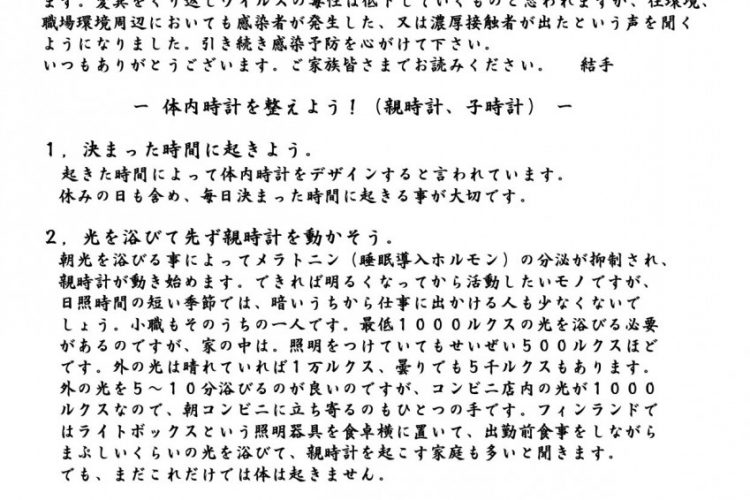 ます。変異をくり返しウイルスの毒性は低下していくものと思われますが、住環境、
職場環境周辺においても感染者が発生した、又は濃厚接触者が出たという声を聞く
ようになりました。引き続き感染予防を心がけて下さい。
いつもありがとうございます。ご家族皆さまでお読みください。　結手
ー 体内時計を整えよう！（親時計、子時計） ー
１，決まった時間に起きよう。
起きた時間によって体内時計をデザインすると言われています。
休みの日も含め、毎日決まった時間に起きる事が大切です。
２，光を浴びて先ず親時計を動かそう。
朝光を浴びる事によってメラトニン（睡眠導入ホルモン）の分泌が抑制され、
親時計が動き始めます。できれば明るくなってから活動したいモノですが、
日照時間の短い季節では、暗いうちから仕事に出かける人も少なくないで
しょう。小職もそのうちの一人です。最低１０００ルクスの光を浴びる必要
があるのですが、家の中は。照明をつけていてもせいぜい５００ルクスほど
です。外の光は晴れていれば１万ルクス、曇りでも５千ルクスもあります。
外の光を５～１０分浴びるのが良いのですが、コンビニ店内の光が１０００
ルクスなので、朝コンビニに立ち寄るのもひとつの手です。フィンランドで
はライトボックスという照明器具を食卓横に置いて、出勤前食事をしながら
まぶしいくらいの光を浴びて、親時計を起こす家庭も多いと聞きます。
でも、まだこれだけでは体は起きません。